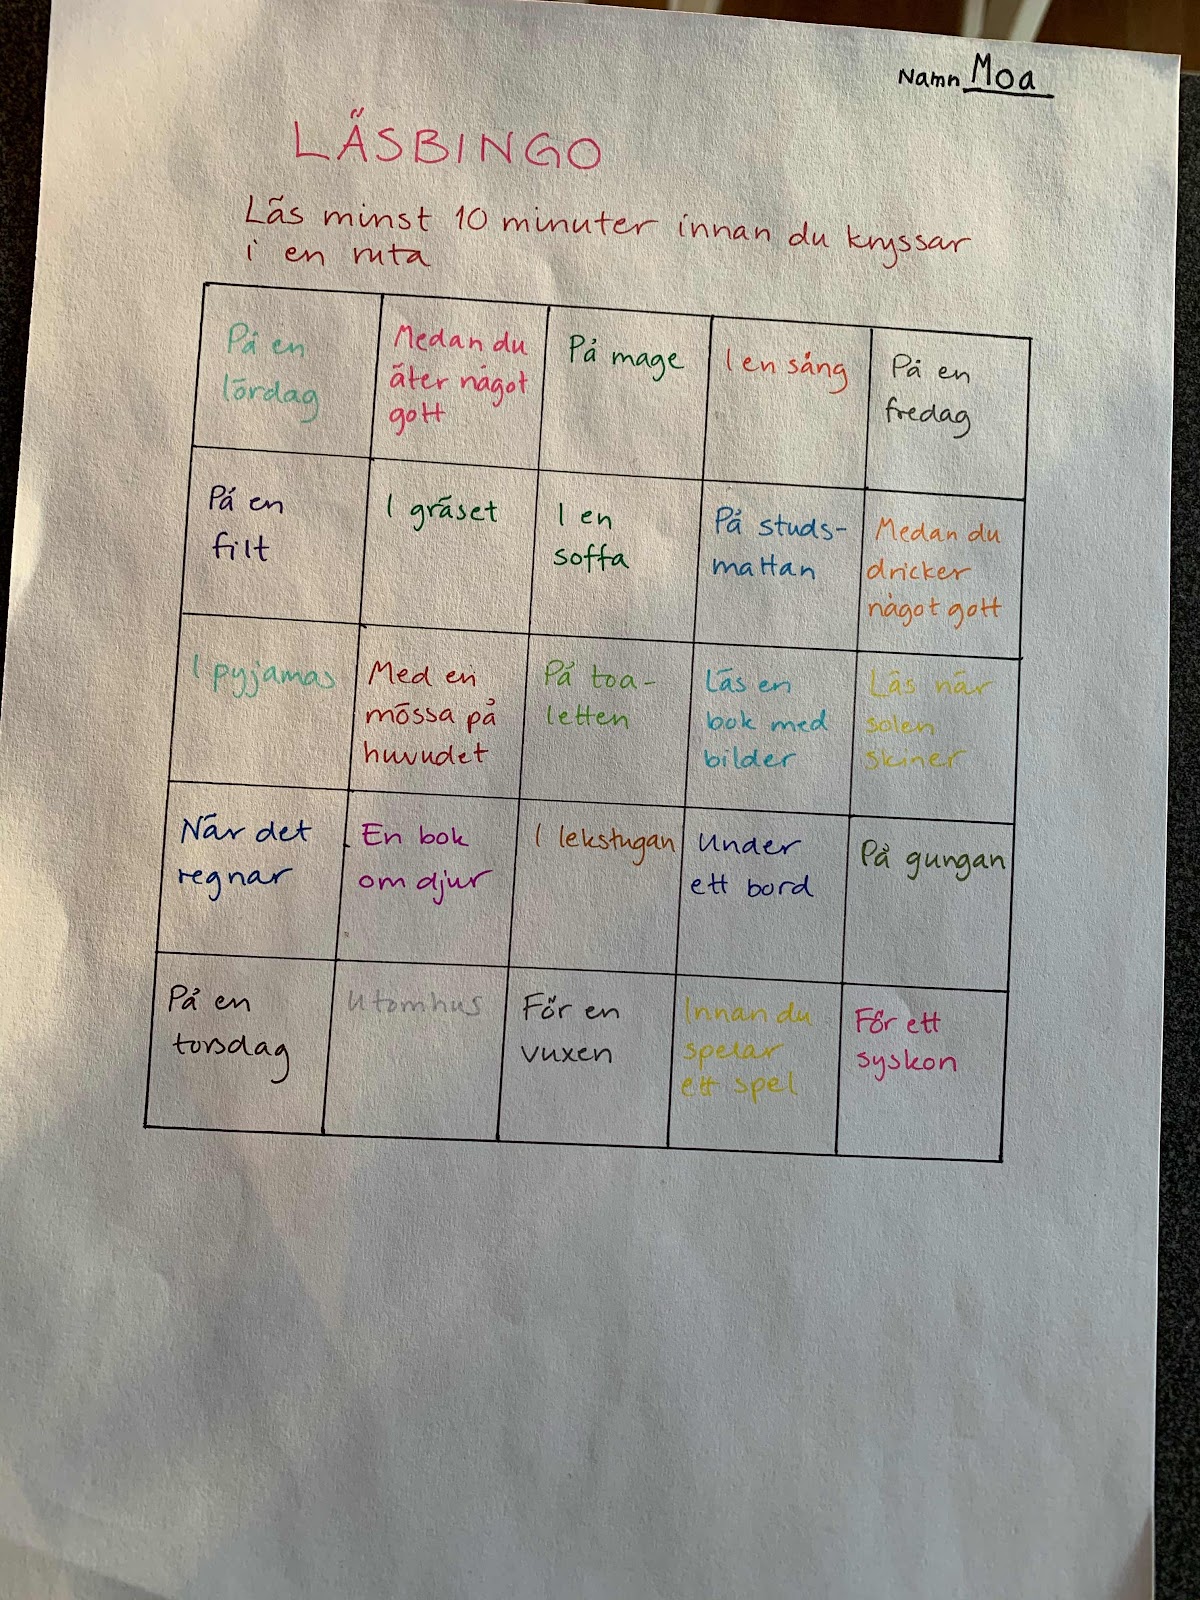 Namn Moa
LÄSBINGO
Läs minst 10 minuter innan du kryssar
i en ruta
På en
lördag
Medan du
äter något
gott
På mage
I en säng
På en
fredag
På en
filt
I gräset
I en
soffa
På studs-
mattan
Medan du
dricker
något gott
I pyjamas
Med en
mössa på
huvudet
På toa-
letten
Läs en
bok med
bilder
Läs när
solen
skiner
När det
regnar
En bok
om djur
I lekstugan
Under
ett bord
På gungan
På en
torsdag
Utomhus
För en
vuxen
Innan du
spelar
ett spel
För ett
syskon